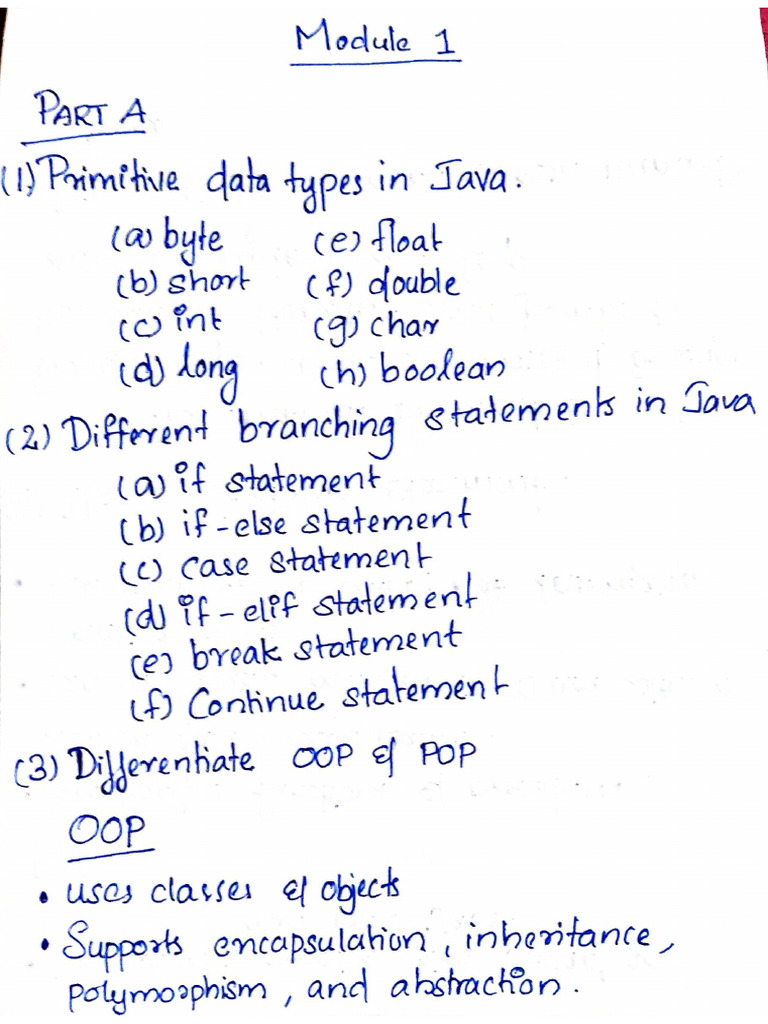 Module 1
PART A
(1) Primitive data types in Java.
(a) byte (e) float
(b) short (f) double
(c) int (g) char
(d) long (h) boolean
(2) Different branching statements in Java
(a) if statement
(b) if-else statement
(c) case statement
(d) if-elif statement
(e) break statement
(f) Continue statement
(3) Differentiate OOP & POP
OOP
• uses classes & objects
• Supports encapsulation, inheritance,
polymorphism, and abstraction.